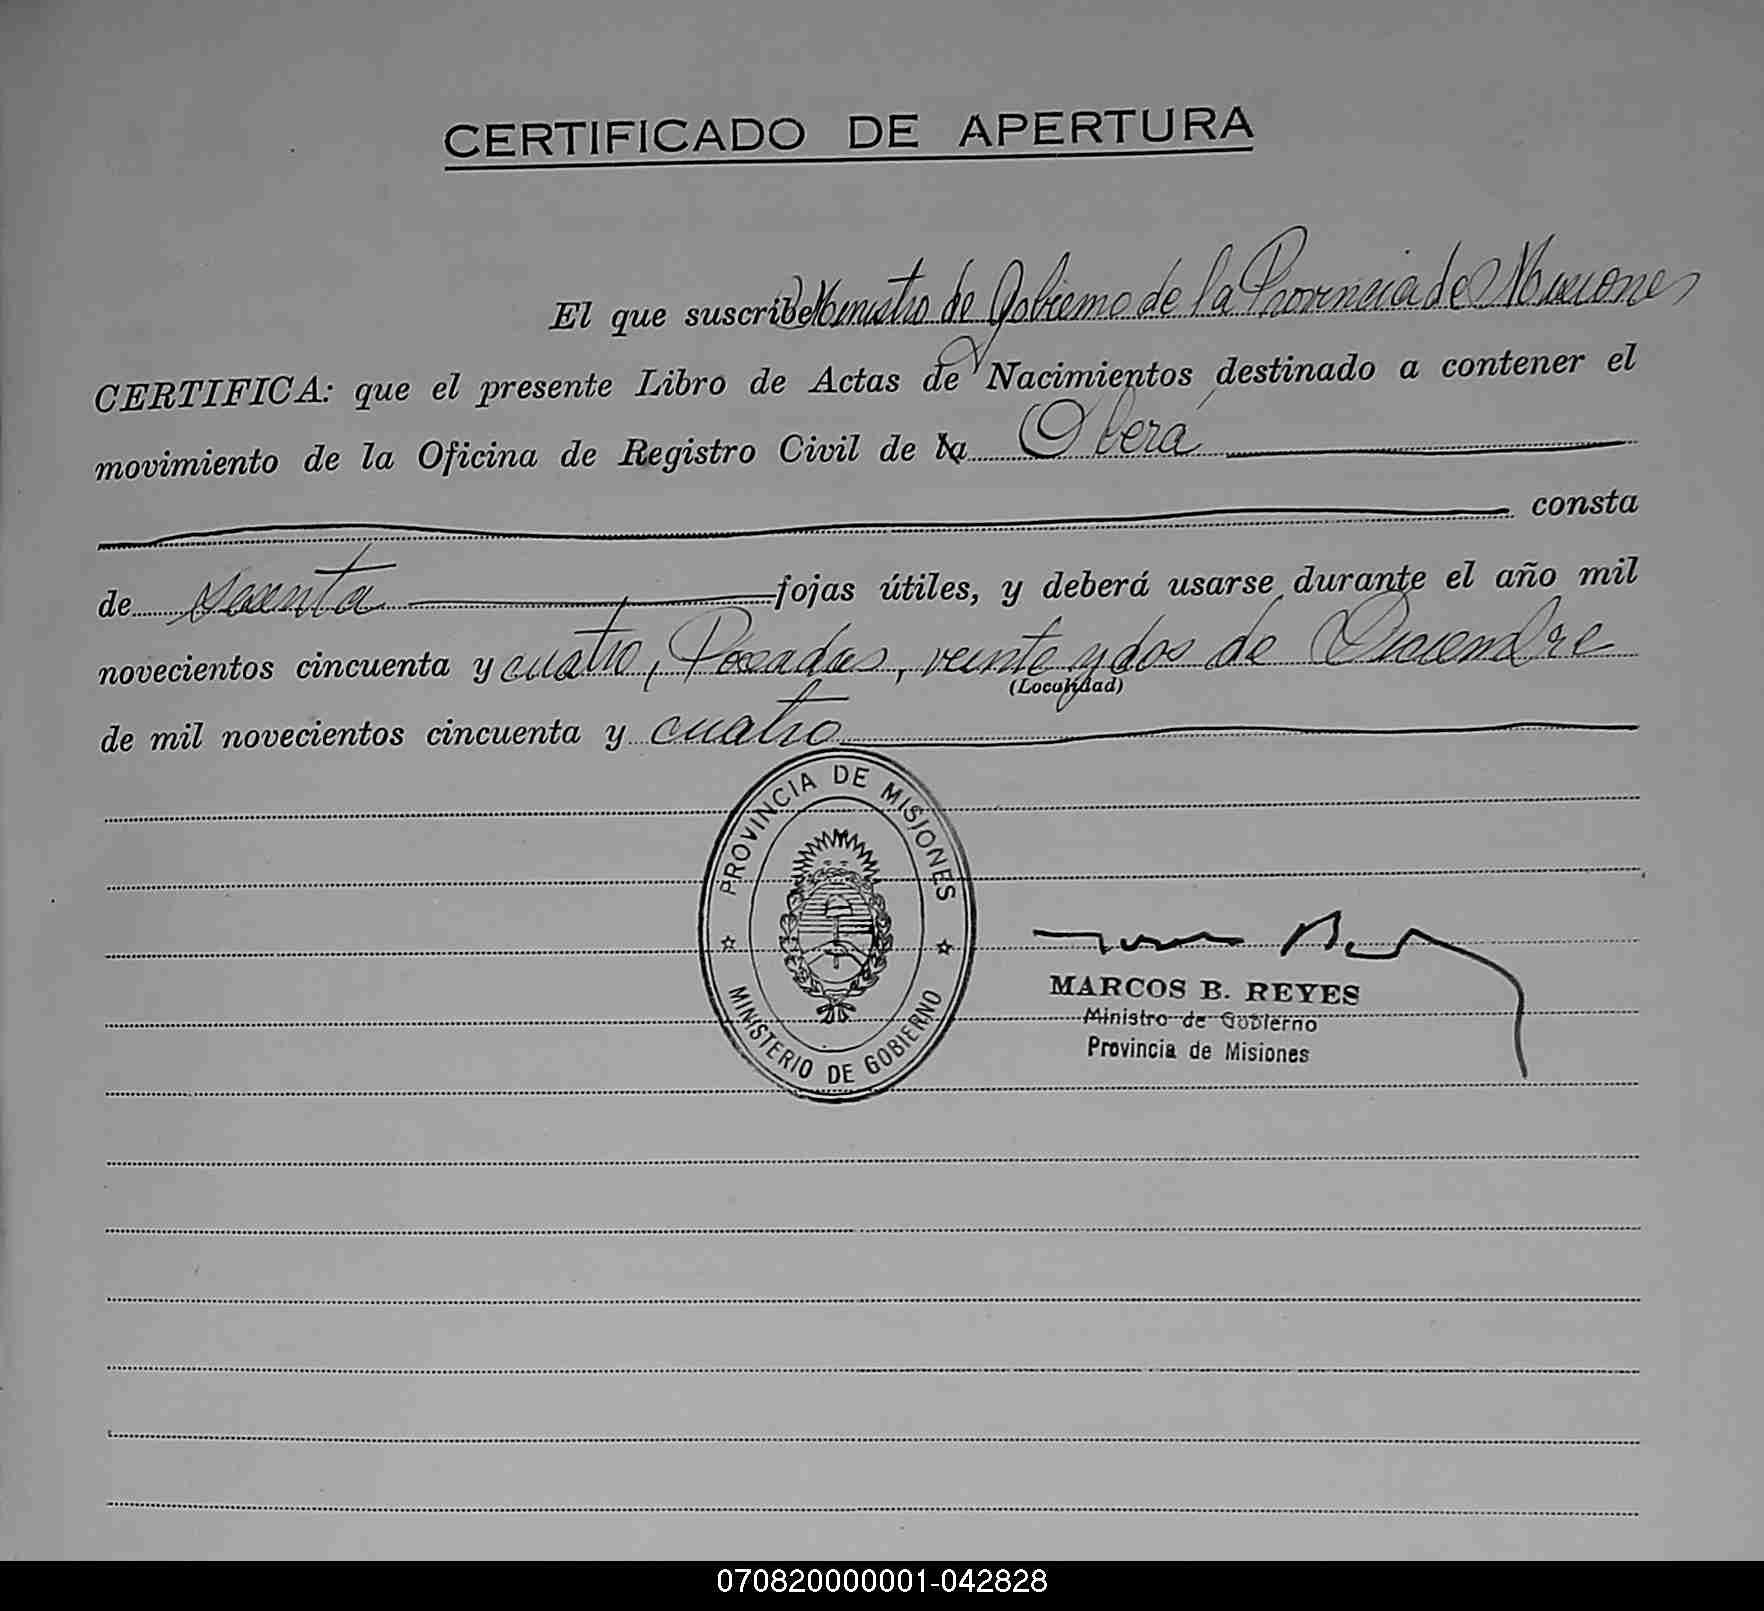 CERTIFICADO DE APERTURA
El que suscribe Ministro de Gobierno de la Provincia de Misiones
CERTIFICA: que el presente Libro de Actas de Nacimientos destinado a contener el
movimiento de la Oficina de Registro Civil de la Oberá
consta
de fojas útiles, y deberá usarse durante el año mil
novecientos cincuenta y cuatro, Posadas, veinte y dos de Diciembre
(Localidad)
de mil novecientos cincuenta y cuatro
PROVINCIA DE MISIONES
MINISTERIO DE GOBIERNO
MARCOS B. REYES
Ministro de Gobierno
Provincia de Misiones
070820000001-042828